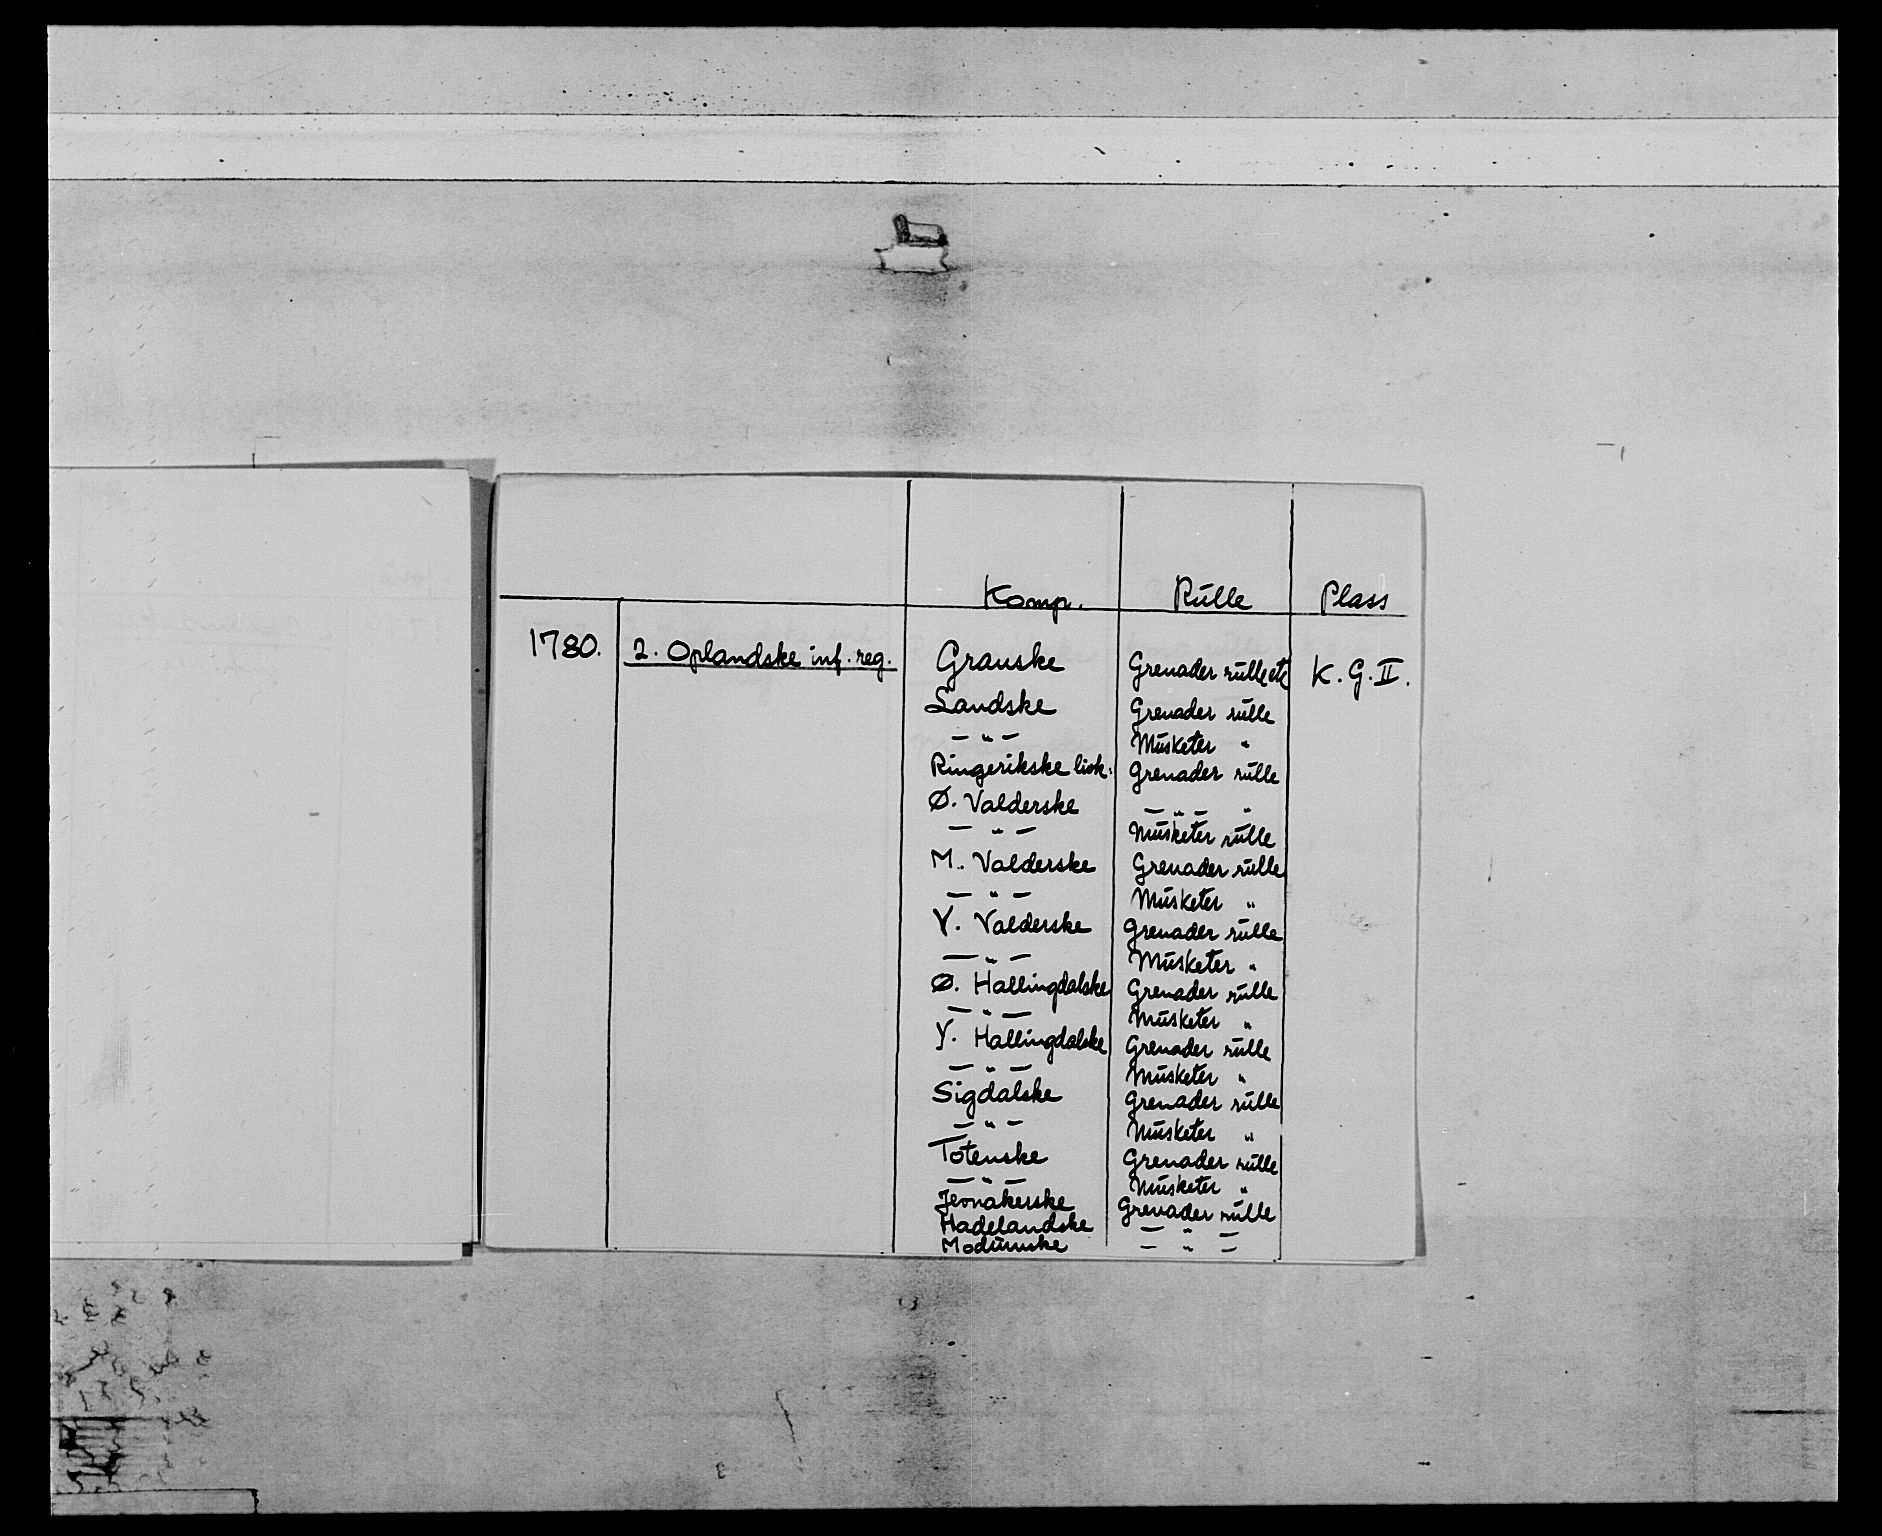 Komp. Rulle Plass
1780. 2. Oplandske inf. reg. Granske Grenader rulle etc K. G. II.
Landske Grenader rulle
— " — Musketer "
Ringerikske lisk. Grenader rulle
Ø. Valderske — " — "
— " — Musketer rulle
M. Valderske Grenader rulle
— " — Musketer "
Y. Valderske Grenader rulle
— " — Musketer "
Ø. Hallingdalske Grenader rulle
— " — Musketer "
Y. Hallingdalske Grenader rulle
— " — Musketer "
Sigdalske Grenader rulle
— " — Musketer "
Totenske Grenader rulle
— " — Musketer "
Jevnakerske Grenader rulle
Hadelandske — " —
Modumske — " —